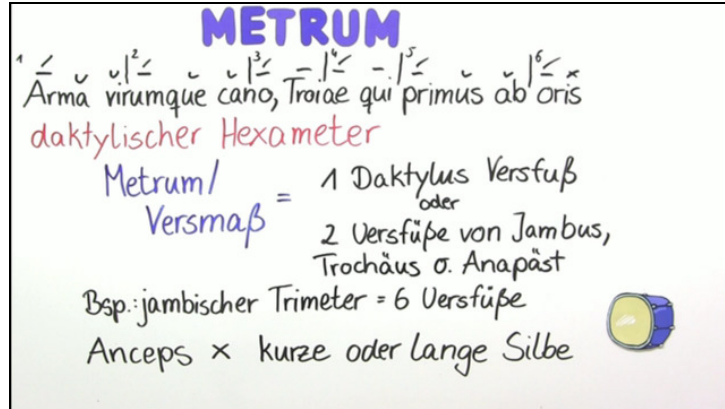 METRUM
1 – ⏑ ⏑|2– ⏑ ⏑|3– –|4– –|5– ⏑ ⏑|6– ×
Arma virumque cano, Troiae qui primus ab oris
daktylischer Hexameter
Metrum/
Versmaß
= 1 Daktylus Versfuß
oder
2 Versfüße von Jambus,
Trochäus o. Anapäst
Bsp.: jambischer Trimeter = 6 Versfüße
Anceps × kurze oder lange Silbe